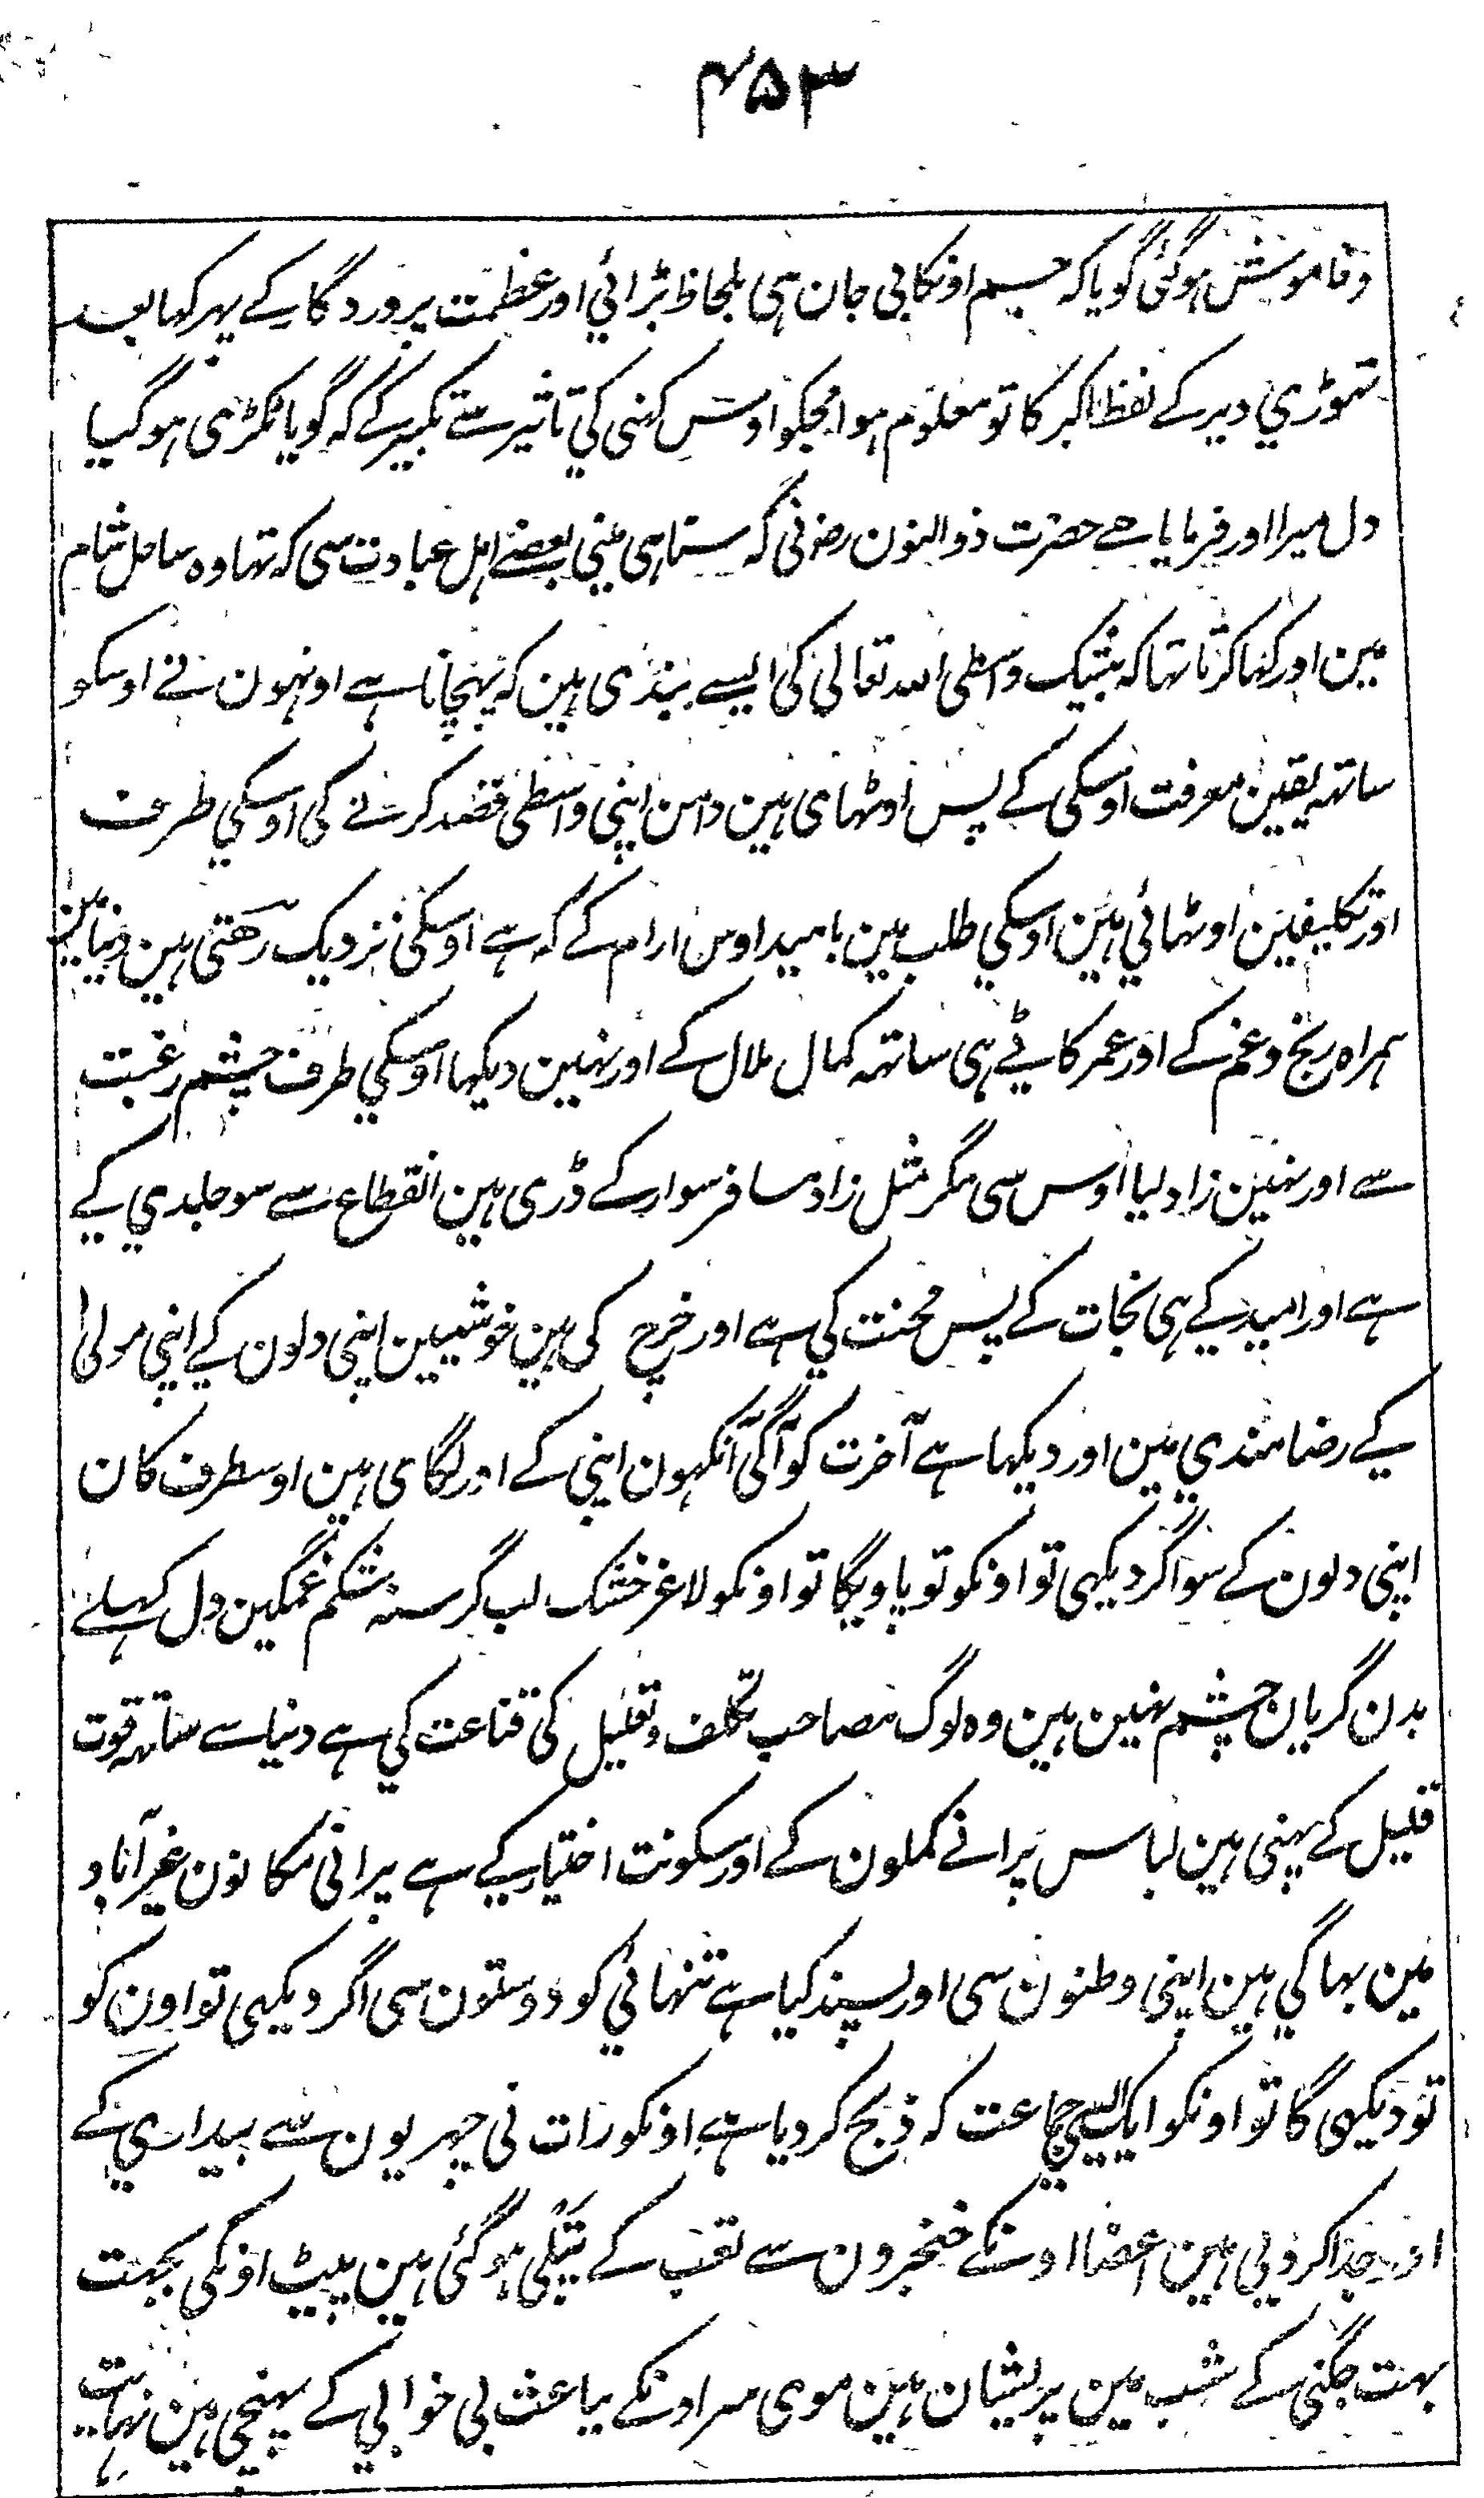 ۴۵۳
وفاموش ہوگئی گویا کہ جسم اونکا بی جان ہی بلحاظ بڑائی اور عظمت پروردگار کے پہر کہا بعد
تہوڑی دیر کے لفظ اکبر کا تو معلوم ہوا مجکو اوس کہنی کی تاثیر سے تکبیر کے کہ گویا ٹکڑی ہوگیا
دل میرا اور فرمایا ہے حضرت ذوالنون رض نی کہ سنا ہی مینی بعضے اہل عبادت سی کہ تہا وہ ساحل شام
مین اور کہا کرتا تہا کہ بیشک واسطی اللہ تعالی کی ایسے بندی ہین کہ پہچانا ہے اونہون نے اوسکو
ساتہہ یقین معرفت اوسکی کے پس اوٹہای ہین دامن اپنی واسطی قصد کرنے کی اوسکی طرف
اور تکلیفین اوٹہائی ہین اوسکی طلب مین بامید اوس ارام کے کہ ہے اوسکی نزدیک رکہتی ہین دنیا مین
ہمراہ رنج و غم کے اور عمر کاٹی ہی ساتہہ کمال ملال کے اور نہین دیکہا اوسکی طرف چشم رغبت
سے اور نہین زاد لیا اوس سی مگر مثل زاد مسافر سوار کے ڈری ہین انقطاع سے سو جلدی کیے
ہے اور امید کیے ہی نجات کے پس محنت کی ہے اور خرچ کی ہین خوشیین اپنی دلون کے اپنی مولی
کے رضامندی مین اور دیکہا ہے آخرت کو آگی آنکہون اپنی کے اور لگای ہین اوسطرف کان
اپنی دلون کے سو اگر دیکہی تو اونکو تو پاویگا تو اونکو لاغر خشک لب گرسنہ شکم غمگین دل کہلے
بدن گریان چشم نہین ہین وہ لوگ مصاحب تکلف و تقلیل کی قناعت کی ہے دنیا سے ساتہہ قوت
قلیل کے پہنی ہین لباس پرانے کملون کے اور سکونت اختیار کیے ہے پرانی مکانون غیر آباد
مین بہاگی ہین اپنی وطنون سی اور پسند کیا ہے تنہائی کو دوستون سی اگر دیکہی تو اون کو
تو دیکہی گا تو اونکو ایک ایسی جماعت کہ ذبح کردیا ہے اونکو رات نی چہریون سے بیداری کے
اور جدا کردیی ہین اعضا اونکے خنجرون سے تعب کے پتلی ہوگئی ہین پیٹ اونکی بجہت
بہت جگنی کے شب مین پریشان ہین موی سر اونکے باعث بی خوابی کے پہنچی ہین نہایت